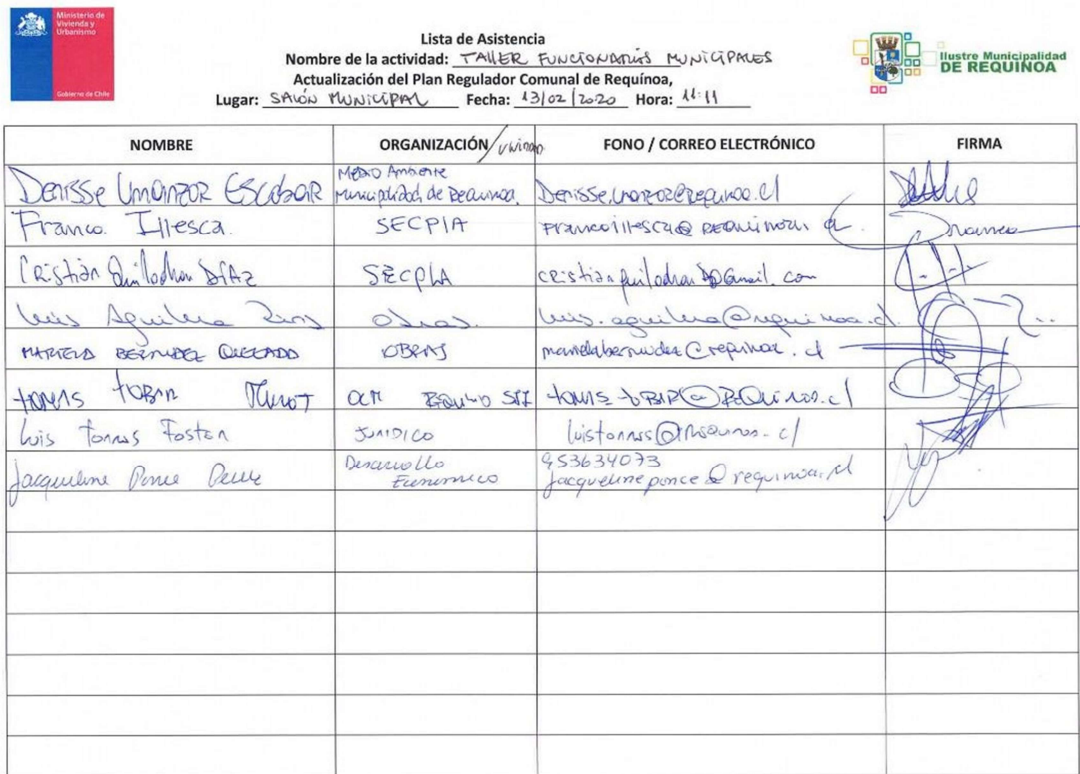 Ministerio de
Vivienda y
Urbanismo
Gobierno de Chile
Ilustre Municipalidad
DE REQUÍNOA
Lista de Asistencia
Nombre de la actividad: TALLER FUNCIONARIOS MUNICIPALES
Actualización del Plan Regulador Comunal de Requínoa,
Lugar: SALÓN MUNICIPAL Fecha: 13/02/2020 Hora: 11:11
NOMBRE ORGANIZACIÓN / FONO / CORREO ELECTRÓNICO FIRMA
Denisse Umanzor Escobar Medio Ambiente
Municipalidad de Requinoa. Denisse.umanzor@requinoa.cl
Franco. Illesca. SECPLA Francoillesca@requinoa.cl
Cristián Quilodran Díaz SECPLA cristianquilodran@gmail.com
Luis Aguilera Obras. luis.aguilera@requinoa.cl.
MARIELA BERMUDEZ QUEZADA OBRAS marielabermudez@requinoa.cl
tomas tobar tomas.tobar@Requinoa.cl
Luis Torres Foster JURIDICO luistorres@requinoa.cl
Jacqueline Ponce Desarrollo
Economico 953634073
Jacquelineponce@requinoa.cl